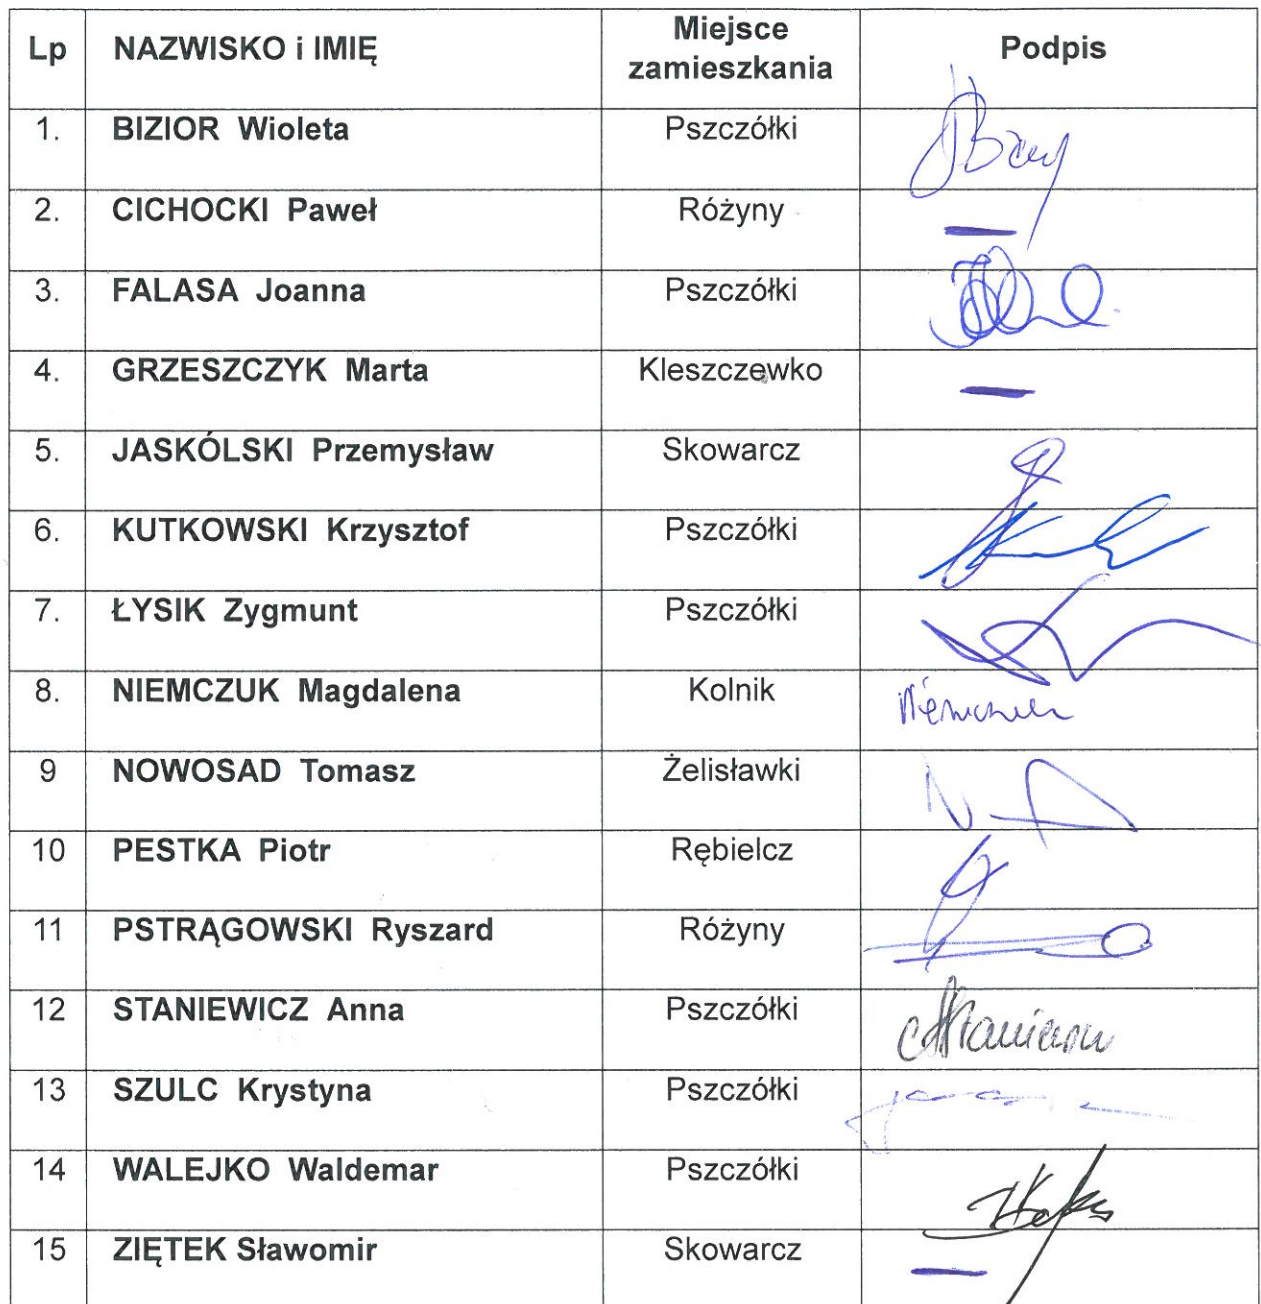 Lp NAZWISKO i IMIĘ Miejsce zamieszkania Podpis
1. BIZIOR Wioleta Pszczółki
2. CICHOCKI Paweł Różyny
3. FALASA Joanna Pszczółki
4. GRZESZCZYK Marta Kleszczewko
5. JASKÓLSKI Przemysław Skowarcz
6. KUTKOWSKI Krzysztof Pszczółki
7. ŁYSIK Zygmunt Pszczółki
8. NIEMCZUK Magdalena Kolnik
9 NOWOSAD Tomasz Żelisławki
10 PESTKA Piotr Rębielcz
11 PSTRĄGOWSKI Ryszard Różyny
12 STANIEWICZ Anna Pszczółki
13 SZULC Krystyna Pszczółki
14 WALEJKO Waldemar Pszczółki
15 ZIĘTEK Sławomir Skowarcz